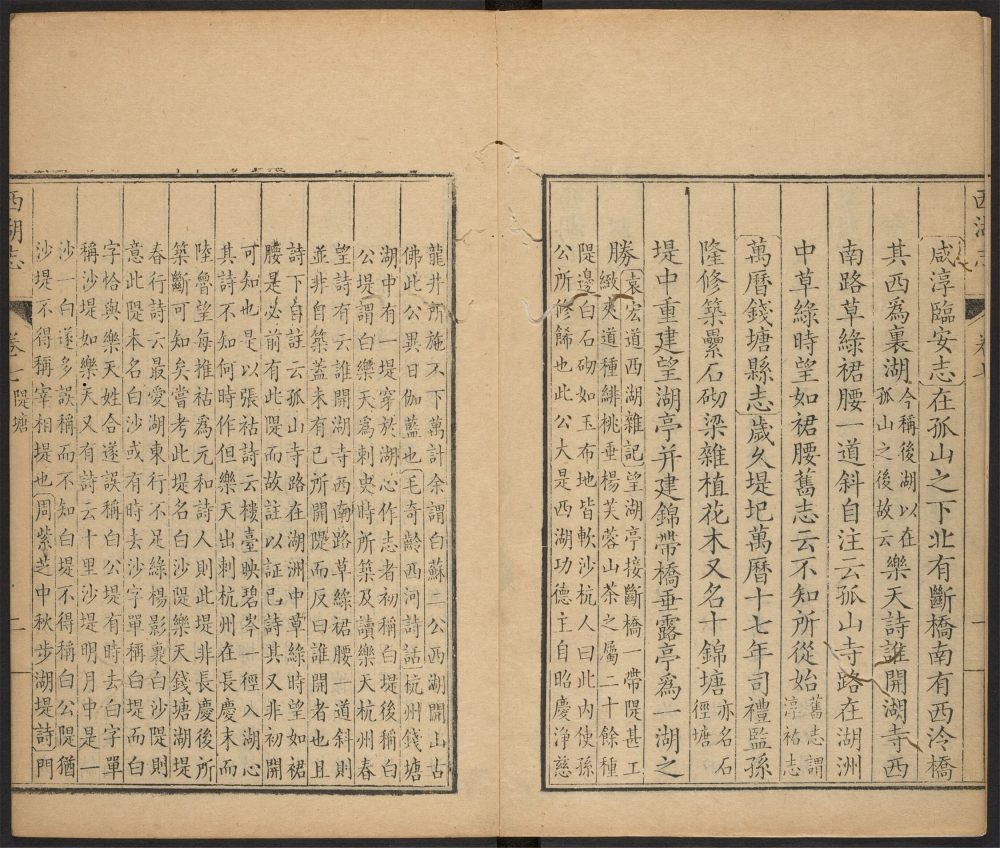 西湖志
卷七
一
咸淳臨安志在孤山之下北有斷橋南有西泠橋
其西爲裏湖今稱後湖以在孤山之後故云樂天詩誰開湖寺西
南路草綠裙腰一道斜自注云孤山寺路在湖洲
中草綠時望如裙腰舊志云不知所從始舊志謂淳祐志
萬曆錢塘縣志歲久堤圮萬曆十七年司禮監孫
隆修築壘石砌梁雜植花木又名十錦塘亦名石徑塘
堤中重建望湖亭并建錦帶橋垂露亭爲一湖之
勝袁宏道西湖雜記望湖亭接斷橋一帶隄甚工
緻夾道種緋桃垂楊芙蓉山茶之屬二十餘種
隄邊白石砌如玉布地皆軟沙杭人曰此內使孫
公所修餙也此公大是西湖功德主自昭慶淨慈
龍井所施不下萬計余謂白蘇二公西湖開山古
佛此公異日伽藍也毛奇齡西河詩話杭州錢塘
湖中有一堤穿於湖心作志者初稱白堤後稱白
公堤謂白樂天爲刺史時所築及讀樂天杭州春
望詩有云誰開湖寺西南路草綠裙腰一道斜則
並非自築蓋未有已所開隄而反曰誰開者也且
詩下自註云孤山寺路在湖洲中草綠時望如裙
腰是必前有此隄而故註以証已詩其又非初開
可知也是以張祜詩云樓臺映碧岑一徑入湖心
其詩不知何時作但樂天出刺杭州在長慶末而
陸魯望每推祜爲元和詩人則此堤非長慶後所
築斷可知矣嘗考此堤名白沙隄樂天錢塘湖堤
春行詩云最愛湖東行不足綠楊影裏白沙隄則
意此隄本名白沙或有時去沙字單稱白堤而白
字恰與樂天姓合遂誤稱白公堤有時去白字單
稱沙堤如樂天又有詩云十里沙堤明月中是一
沙一白遂多誤稱而不知白堤不得稱白公隄猶
沙堤不得稱宰相堤也周紫芝中秋步湖堤詩門
西湖志
卷七
隄塘
二